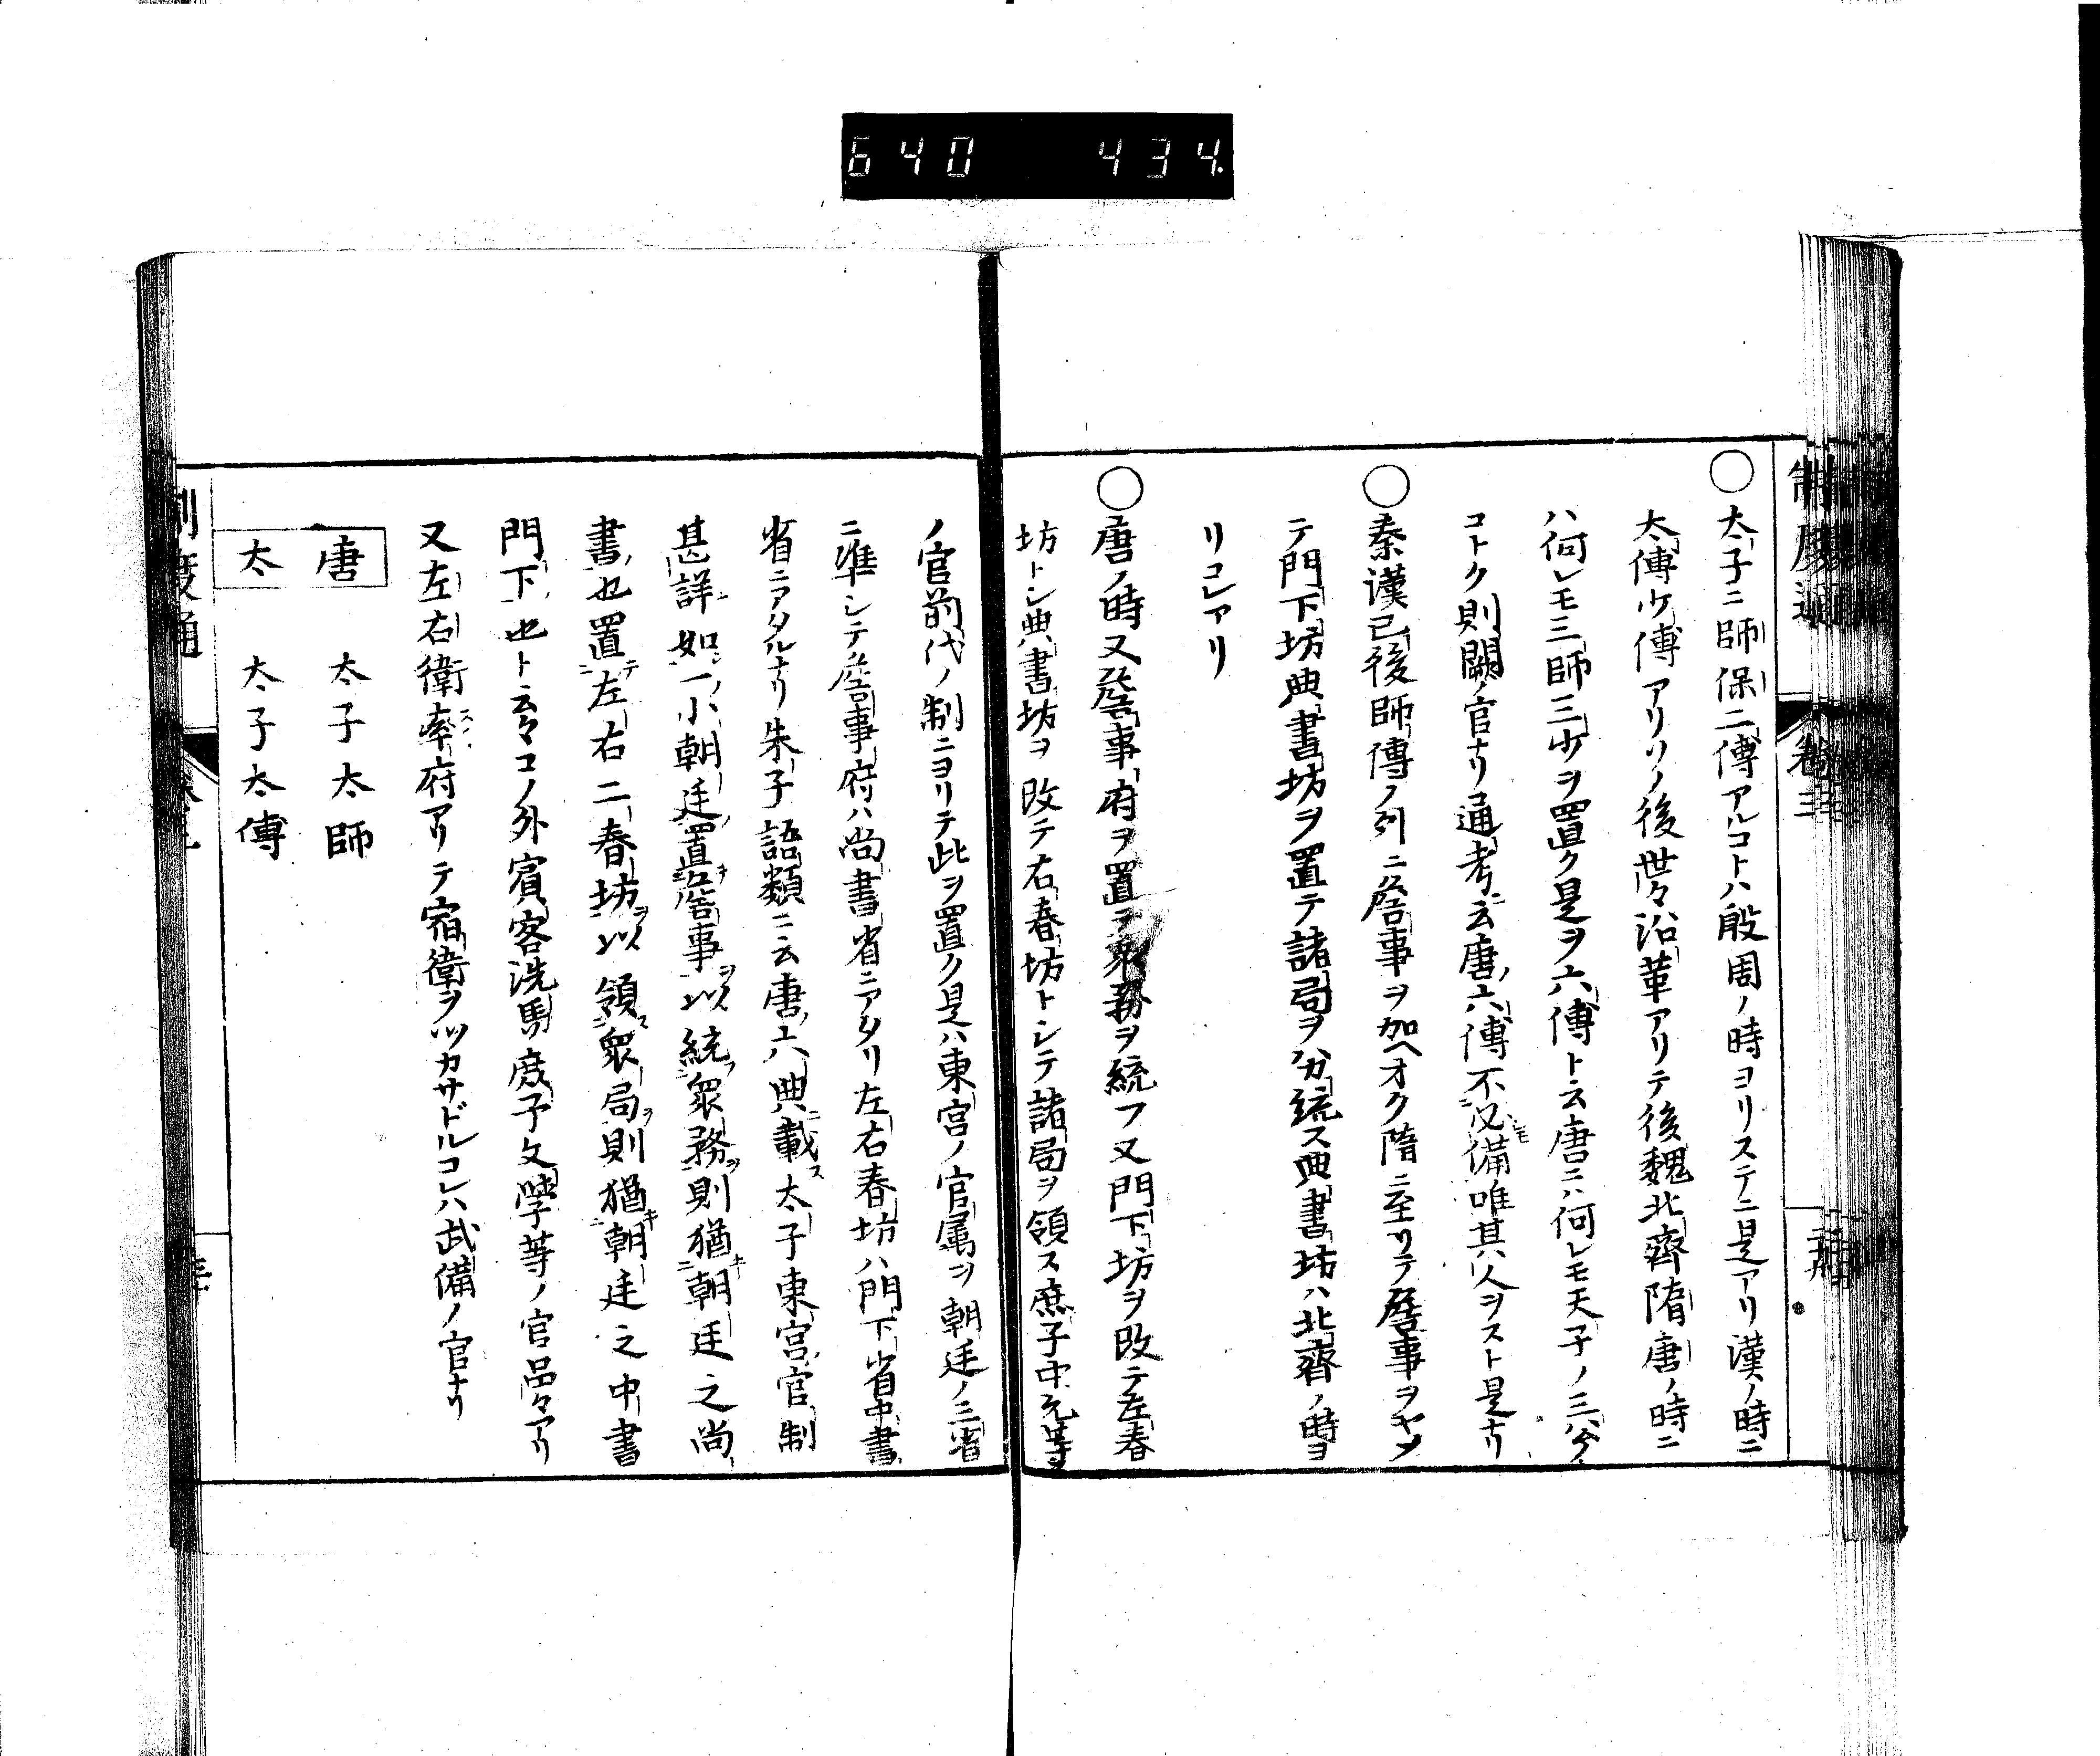 640 434.
制度通 卷三
〇太子ニ師保二傅アルコトハ殷周ノ時ヨリステニ是アリ漢ノ時ニ
太傅少傅アリソノ後世々沿革アリテ後魏北齊隋唐ノ時ニ
ハ何レモ三師三少ヲ置ク是ヲ六傅ト云唐ニハ何レモ天子ノ三公ノ
コトク則闕ノ官ナリ通考ニ云唐六傅不必備唯其人ヲスト是ナリ
〇秦漢已後師傅ノ列ニ詹事ヲ加ヘオク隋ニ至リテ詹事ヲヤメ
テ門下坊典書坊ヲ置テ諸局ヲ分統ス典書坊ハ北齊ノ時ヨ
リコレアリ
〇唐ノ時又詹事府ヲ置テ衆務ヲ統フ又門下坊ヲ改テ左春
坊トシ典書坊ヲ改テ右春坊トシテ諸局ヲ領ス庶子中允等
ノ官前代ノ制ニヨリテ此ヲ置ク是ハ東宮ノ官属ヲ朝廷ノ三省
ニ準シテ詹事府ハ尚書省ニアタリ左右春坊ハ門下省中書
省ニアタルナリ朱子語類ニ云唐六典載太子東宮官制
甚詳如一小朝廷置詹事以統衆務則猶朝廷之尚
書也置左右二春坊以領衆局則猶朝廷之中書
門下也ト云々コノ外賓客洗馬庶子文學等ノ官品々アリ
又左右衛率府アリテ宿衛ヲツカサドルコレハ武備ノ官ナリ
唐 太子太師
太 太子太傅
制度通